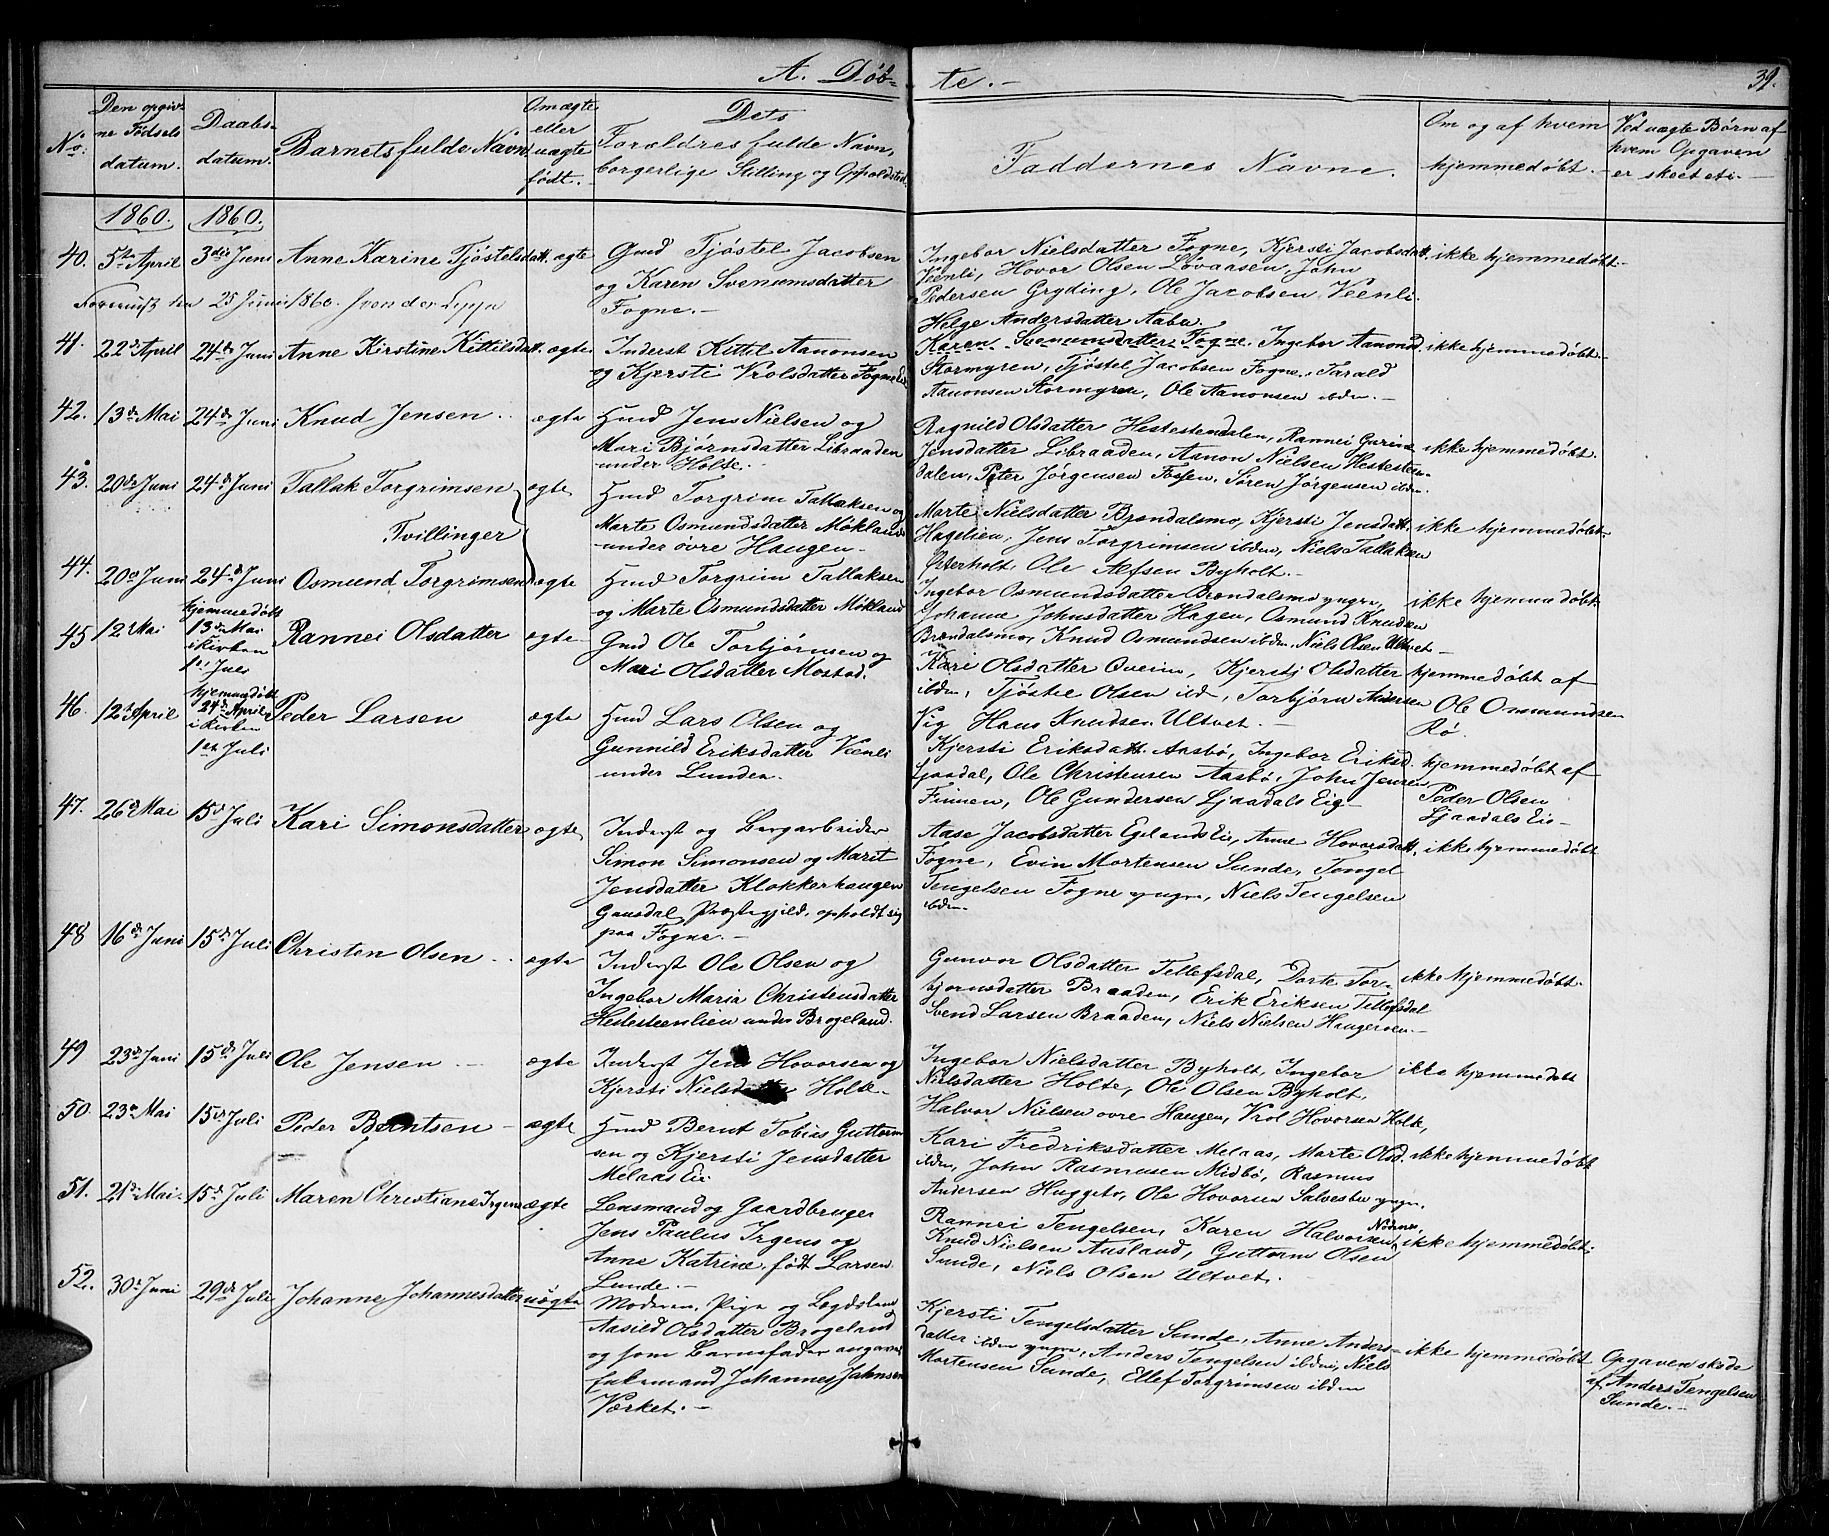 A. Døb-
te.-
39.
No:
Den opgiv-
ne Fødsels
datum.
Daabs-
datum.
Barnets fulde Navn
Om ægte
eller
uægte
født.
Dets
Forældres fulde Navn,
borgerlige Stilling og Opholdsted
Faddernes Navne.
Om og af hvem
hjemmedøbt.
Ved uægte Børn af
hvem Opgaven
er skeet etc-
1860.
1860.
40. 5te April
3die Juni
Anne Karine Tjøstelsdatt.
ægte
Gmd Tjøstel Jacobsen
og Karen Svenumsdatter
Fogne.-
Ingebor Nielsdatter Fogne, Kjersti Jacobsdatt.
Veenli, Hovor Olsen Løvaasen, John
Pedersen Gryding, Ole Jacobsen Veenli.
Helge Andersdatter Aabu.
ikke hjemmedøbt.
25 Juni 1860.
41. 22de April
24de Juni
Anne Kirstine Kittilsdatt.
ægte
Inderst Kittel Aanonsen
og Kjersti Vrolsdatter Fogne Eie
Karen Svenumsdatter Fogne, Ingebor Aanonsd.
Stormyren, Tjøstel Jacobsen Fogne, Tarald
Aanonsen Stormyren, Ole Aanonsen ibdm.-
ikke hjemmedøbt.-
42. 13de Mai
24de Juni
Knud Jensen
ægte
Hmd Jens Nielsen og
Mari Bjørnsdatter Libraaden
under Holte.
Ragnild Olsdatter Hestestendalen, Rannei Gurine
Jensdatter Libraaden, Aanon Nielsen Hestesten-
dalen, Peter Jørgensen Fossen, Søren Jørgensen ibdm.
ikke hjemmedøbt.
43. 20de Juni
24de Juni
Tallak Torgrimsen
Tvillinger
ægte
Hmd Torgrim Tallaksen og
Marte Osmundsdatter Møkland
under øvre Haugen.
Marte Nielsdatter Brøndalsmo, Kjersti Jensdatt.
Hagelien, Jens Torgrimsen ibdm, Niels Tallaksen
Østerholt, Ole Ælfsen Byholt.-
ikke hjemmedøbt.
44. 20de Juni
24de Juni
Osmund Torgrimsen
ægte
Hmd Torgrim Tallaksen
og Marte Osmundsdatter Møkland
Ingebor Osmundsdatter Brøndalsmo yngre,
Johanne Johnsdatter Hagen, Osmund Knudsen
Brøndalsmo, Knud Osmundsen ibdm, Niels Olsen Ultvet-
ikke hjemmedøbt.
45 12te Mai
hjemmedøbt
13de Mai
i Kirken
1ste Juli
Rannei Olsdatter
ægte
Gmd Ole Torbjørnsen og
Mari Olsdatter Mostad.
Kari Olsdatter Oveim, Kjersti Olsdatter
ibdm, Tjøstel Olsen ibd, Torbjørn Andersen
Vig Hans Knudsen Ultvet.-
hjemmedøbt af
Ole Osmundsen
Rø.
46. 12te April
hjemmedøbt
24de April
i Kirken
1ste Juli
Peder Larsen
ægte
Hmd Lars Olsen og
Gunnild Eriksdatter Veenli
under Lunden.
Kjersti Eriksdatt. Aasbø, Ingebor Eriksd.
Ljaadal, Ole Christensen Aasbø, John Jensen
Finnen, Ole Gundersen Ljaadals Eie-
hjemmedøbt af
Peder Olsen
Ljaadals Eie-
47. 26de Mai
15de Juli
Kari Simonsdatter
ægte
Inderst og Bergarbeider
Simon Simonsen og Marit
Jensdatter Klokkerhaugen
Gausdal Præstegjeld, opholdt sig
paa Fogne.-
Aase Jacobsdatter Egelands Eie, Anne Hovorsdatt.
Fogne, Evin Mortensen Sunde, Tengel
Tengelsen Fogne yngre, Niels Tengelsen
ibdm-
ikke hjemmedøbt
48 16de Juni
15de Juli
Christen Olsen
ægte
Inderst Ole Olsen og
Ingebor Maria Christensdatter
Hestesteenlien under Brogeland.
Gunvor Olsdatter Tellefsdal, Dorte Tor-
bjørnsdatter Braaden, Erik Eriksen Tellefsdal
Svend Larsen Braaden, Niels Nielsen Haugeroen-
ikke hjemmedøbt.
49 23de Juni
15de Juli
Ole Jensen
ægte
Inderst Jens Hovorsen og
Kjersti Nielsdatter Holte-
Ingebor Nielsdatter Byholt, Ingebor
Nielsdatter Holte, Ole Olsen Byholt,
Halvor Nielsen øvre Haugen, Vrol Hovorsen Holte,
ikke hjemmedøbt
50. 23de Mai
15de Juli
Peder Berntsen
ægte
Hmd Bernt Tobias Guttorm-
sen og Kjersti Jensdatter
Melaas Eie.
Kari Fredriksdatter Melaas, Marte Olsd.
ibdm, John Rasmusen Midbø, Rasmus
Andersen Huggeto, Ole Hovorsen Salvesbu yngre.
ikke hjemmedøbt
51. 21de Mai.
15de Juli
Maren Christiane Irgens
ægte
Lensmand og Gaardbruger
Jens Paulus Irgens og
Anne Katrine, født Larsen
Lunde.-
Rannei Tengelsen, Karen Halvorsen Nødenes
Knud Nielsen Ausland, Guttorm Olsen
Sunde, Niels Olsen Ultvet.
ikke hjemmedøbt.
52. 30te Juni
29de Juli
Johanne Johannesdatter
uægte
Moderen, Pige og Lægdslem
Aasild Olsdatter Brogeland
og som Barnefader angaves
Enkemand Johannes Johnsen
Værket.-
Kjersti Tengelsdatter Sunde, Anne Anders-
datter ibdm yngre, Anders Tengelsen ibdm, Niels
Mortensen Sunde, Ellef Torgrimsen ibdm
ikke hjemmedøbt
Opgaven skede
af Anders Tengelsen
Sunde.-